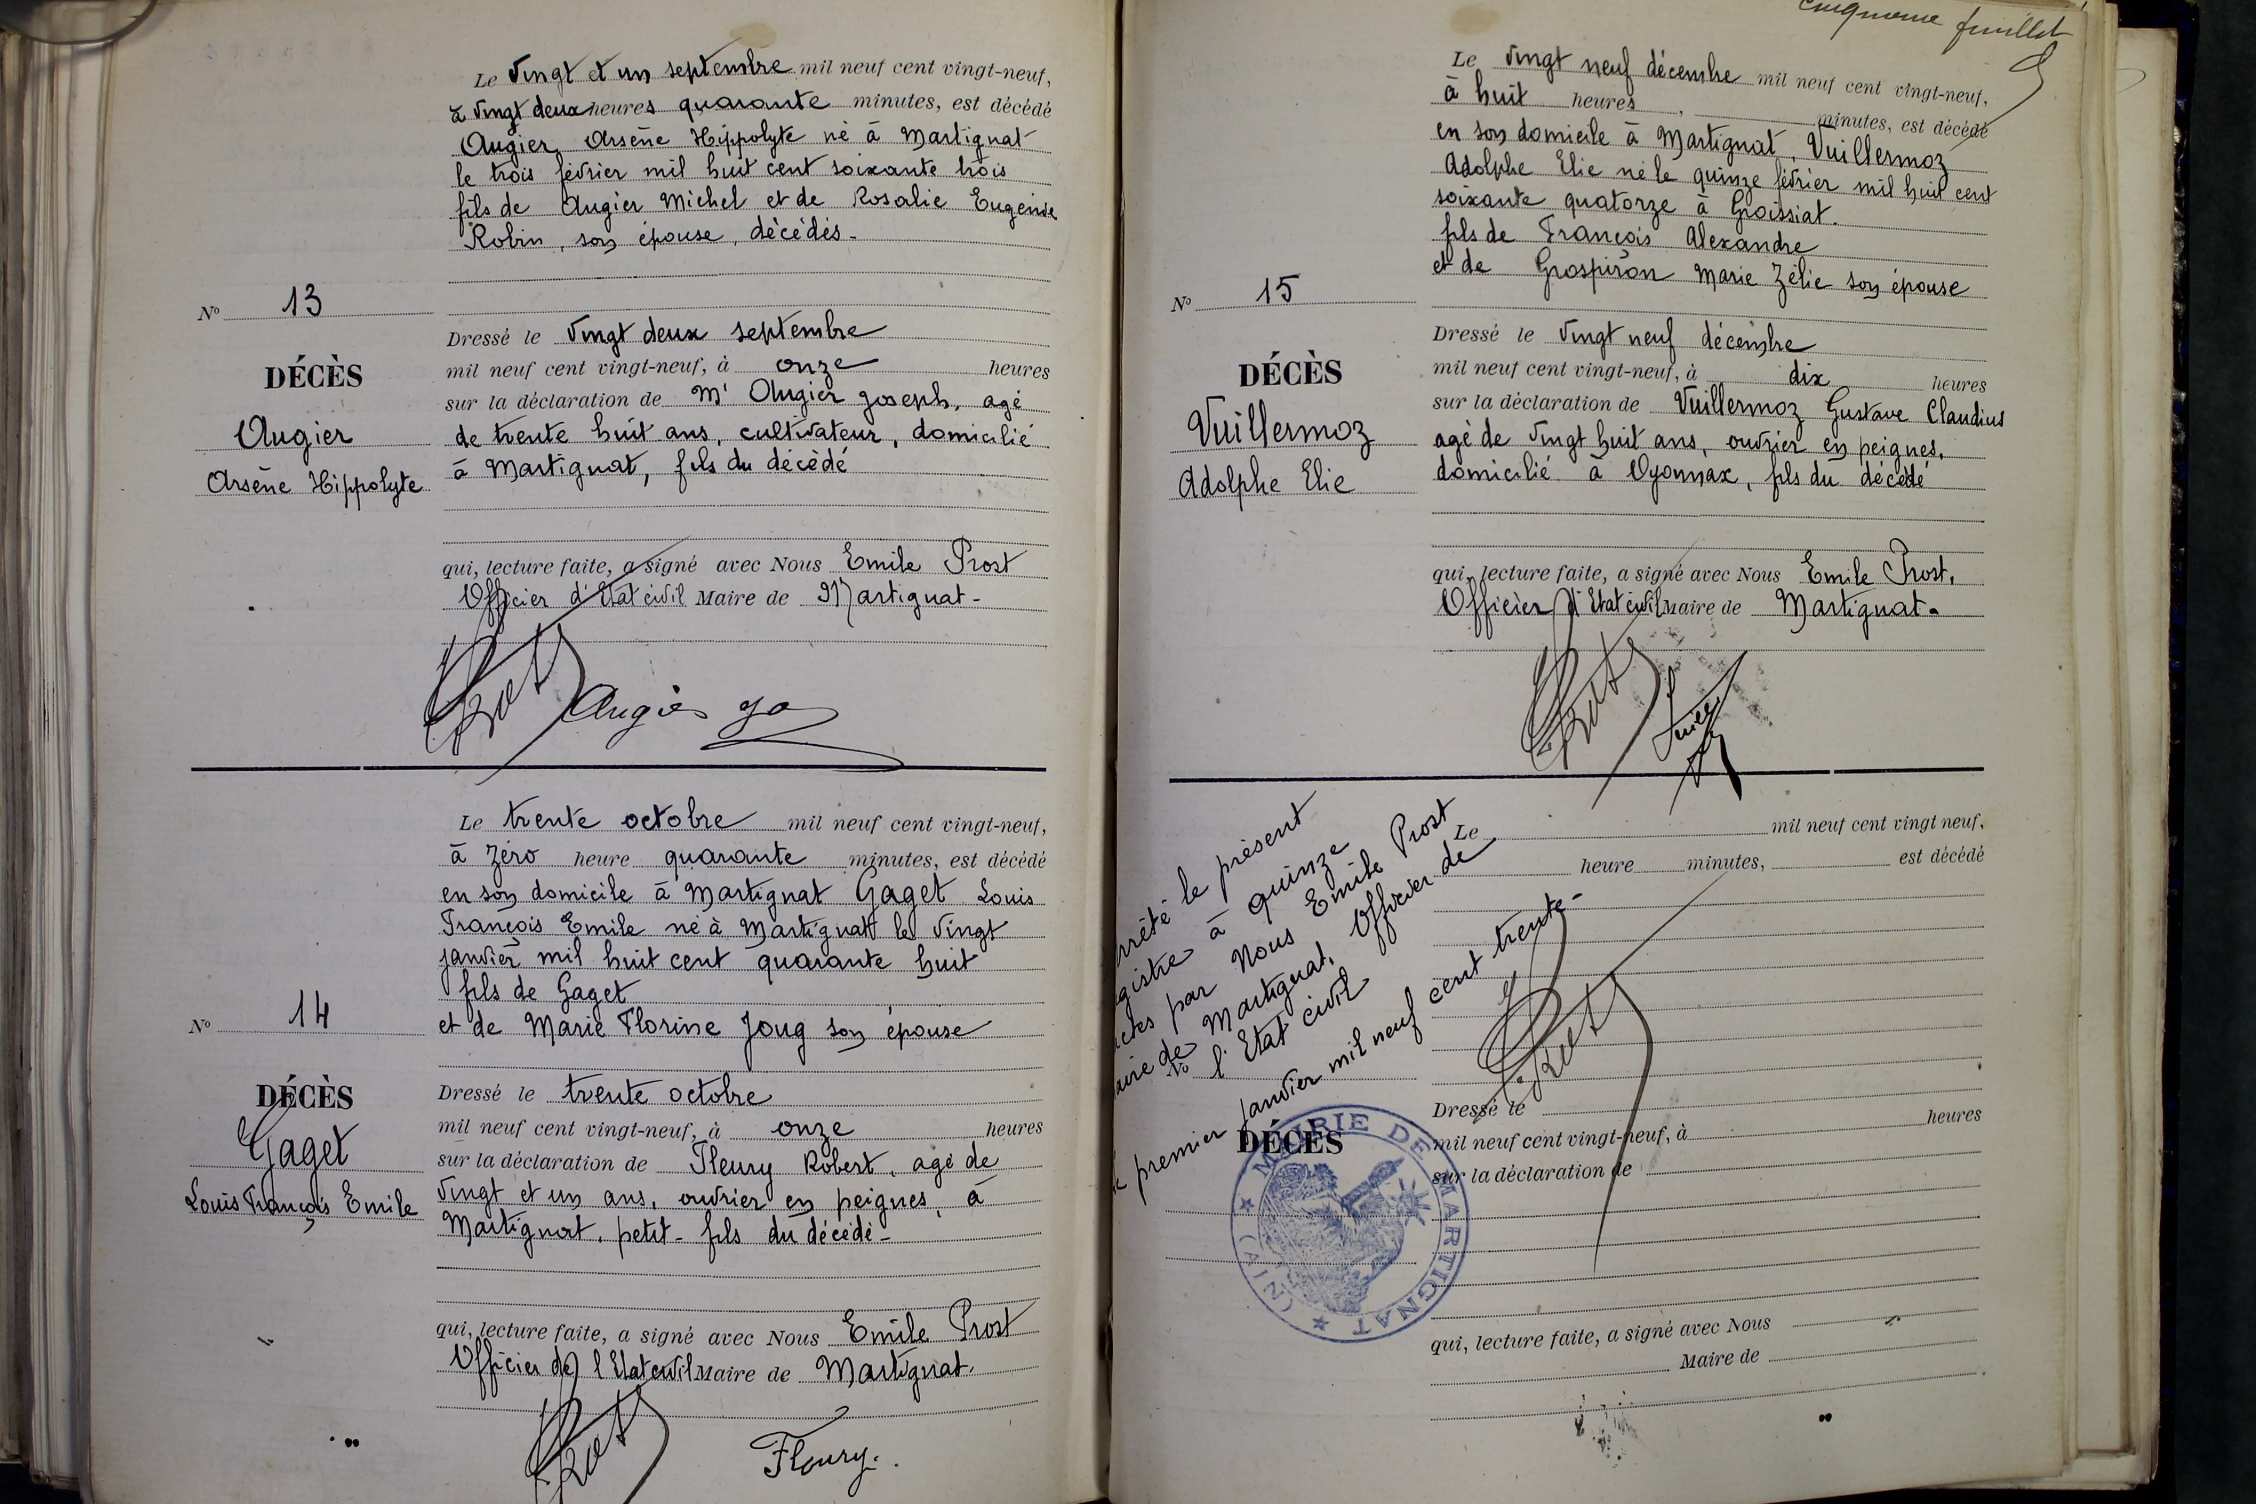 Le Vingt et un septembre mil neuf cent vingt-neuf,
à Vingt deux heures quarante minutes, est décédé
Augier Arsène Hippolyte né à Martignat
le trois février mil huit cent soixante trois
fils de Augier Michel et de Rosalie Eugénie
Robin, son épouse, décédés -
No 13
DÉCÈS
Augier
Arsène Hippolyte
Dressé le Vingt deux septembre
mil neuf cent vingt-neuf, à onze heures
sur la déclaration de Mr Augier Joseph, agé
de trente huit ans, cultivateur, domicilié
à Martignat, fils du décédé
qui, lecture faite, a signé avec Nous Emile Prost
Officier d'Etat civil Maire de Martignat -
Prost Augier Jo
Le trente octobre mil neuf cent vingt-neuf,
à Zéro heure quarante minutes, est décédé
en son domicile à Martignat Gaget Louis
François Emile né à Martignat le Vingt
janvier mil huit cent quarante huit
fils de Gaget
et de Marie Florine Joug son épouse
No 14
DÉCÈS
Gaget
Louis François Emile
Dressé le trente octobre
mil neuf cent vingt-neuf, à onze heures
sur la déclaration de Fleury Robert, agé de
Vingt et un ans, ouvrier en peignes, à
Martignat, petit-fils du décédé -
qui, lecture faite, a signé avec Nous Emile Prost
Officier de l'Etat civil Maire de Martignat.
Prost Fleury.
Cinquième feuillet
Le Vingt neuf décembre mil neuf cent vingt-neuf,
à huit heures minutes, est décédé
en son domicile à Martignat, Vuillermoz
Adolphe Elie né le quinze février mil huit cent
soixante quatorze à Groissiat.
fils de François Alexandre
et de Grospiron Marie Zélie son épouse
No 15
DÉCÈS
Vuillermoz
Adolphe Elie
Dressé le Vingt neuf décembre
mil neuf cent vingt-neuf, à dix heures
sur la déclaration de Vuillermoz Gustave Claudius
agé de Vingt huit ans, ouvrier en peignes,
domicilié à Oyonnax, fils du décédé
qui, lecture faite, a signé avec Nous Emile Prost,
Officier d'Etat civil Maire de Martignat.
Prost
rrêté le présent
gistre à quinze
ctes par Nous Emile Prost
aire de Martignat, Officier de
l'Etat civil
le premier janvier mil neuf cent trente -
Prost
Le mil neuf cent vingt neuf,
heure minutes, est décédé
No
DÉCÈS
MAIRIE DE MARTIGNAT
(AIN)
Dressé le
mil neuf cent vingt-neuf, à heures
sur la déclaration de
qui, lecture faite, a signé avec Nous
Maire de